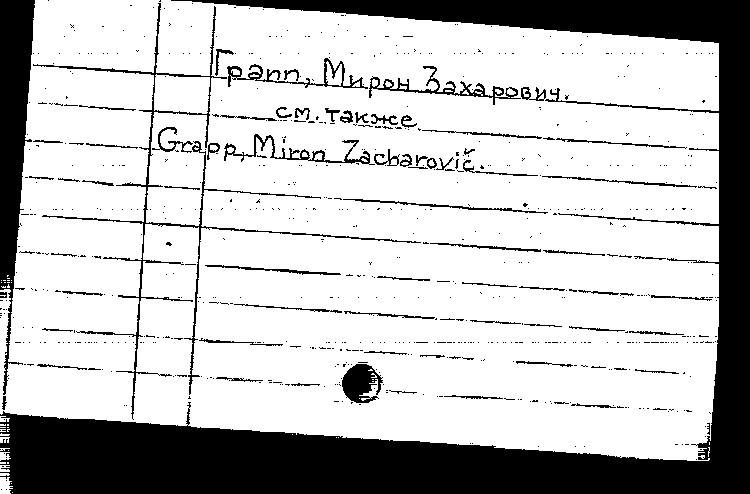 Грапп, Мирон Захарович.
см. также
Grapp, Miron Zacharovič.